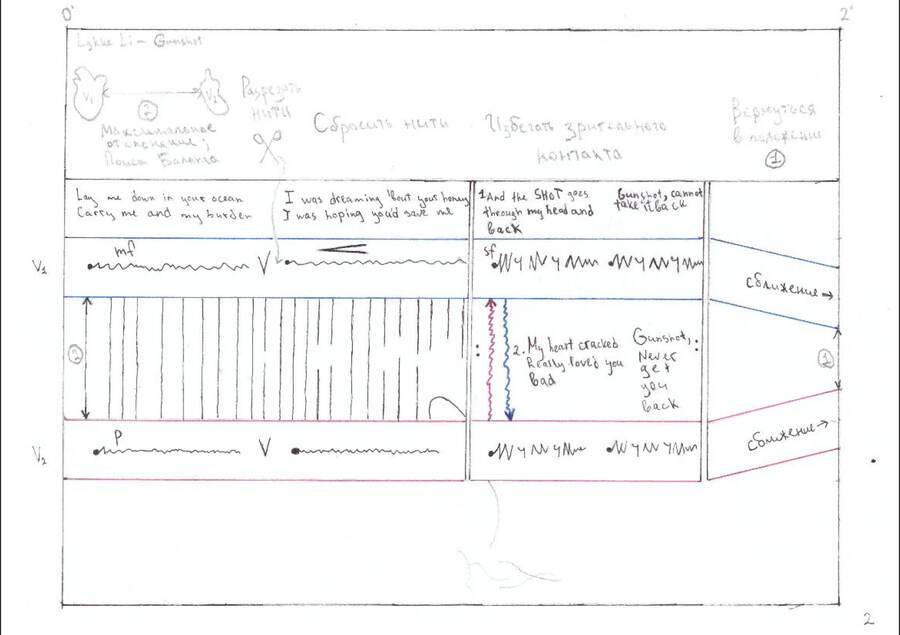 0' 2'
Lykke Li – Gunshot
V₁ V₂
②
Максимальное
отклонение;
Поиск Баланса
Разрезать
нити
Сбросить нити
Избегать зрительного
контакта
Вернуться
в положение
①
Lay me down in your ocean
Carry me and my burden
I was dreaming 'bout your honey
I was hoping you'd save me
1. And the SHOT goes
through my head and
back
Gunshot, cannot
take it back
V₁
mf
V
sf
сближение →
②
2. My heart cracked
Really loved you
Bad
Gunshot,
Never
get
you
back
①
V₂
p
V
сближение →
2